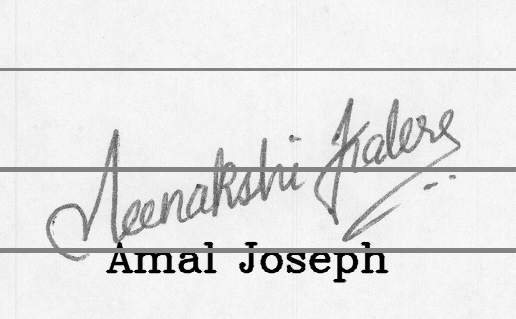 Meenakshi Kalere
Amal Joseph